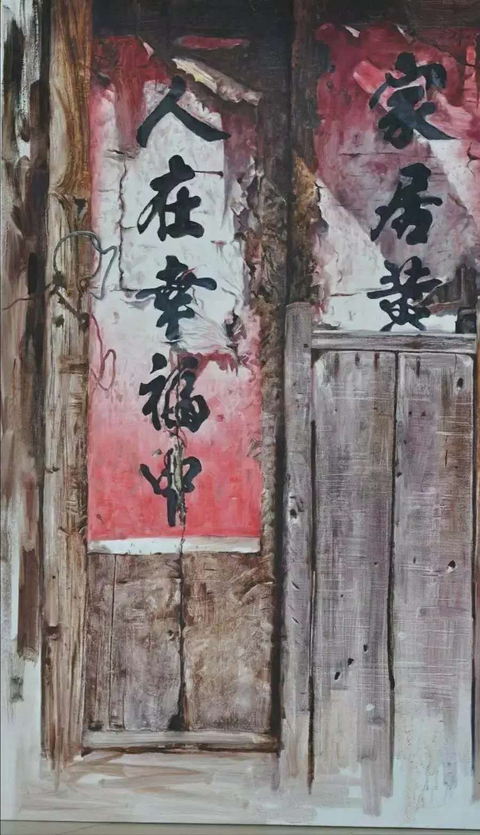 家居黄
人在幸福中